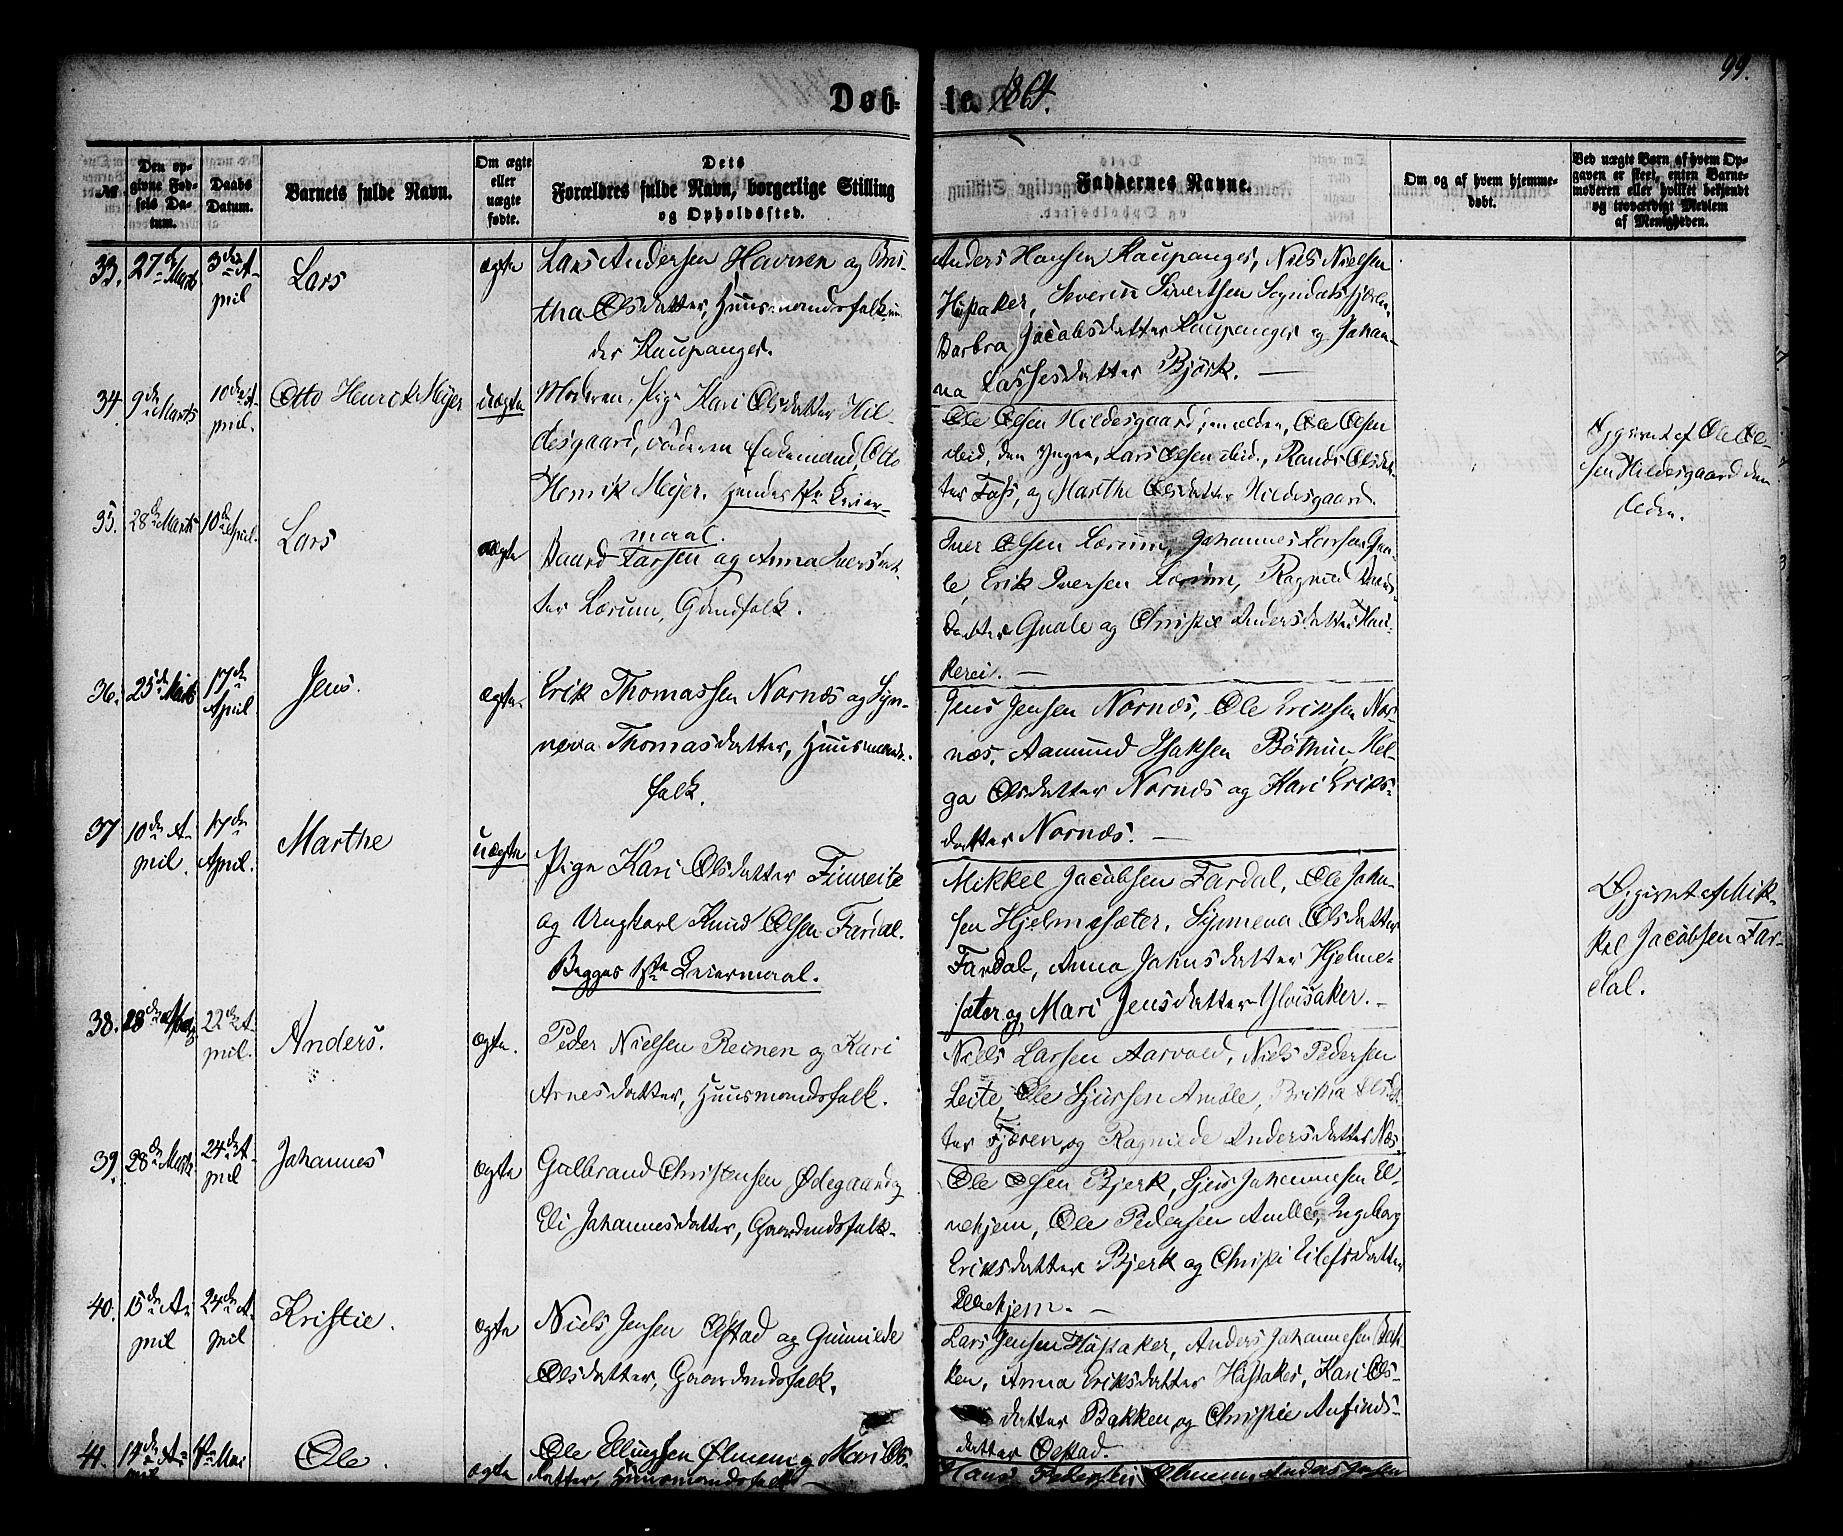 99.
Døb- te. 1864.
№
Den opgivne Fødsels Datum.
Daabs Datum.
Barnets fulde Navn.
Om ægte eller uægte født.
Dets Forældres fulde Navn, borgerlige Stilling og Opholdssted.
Faddernes Navne.
Om og af hvem hjemmedøbt.
Ved uægte Børn af hvem Opgaven er skeet, enten Barnemoderen eller hvilket bekjendt og troværdigt Medlem af Menigheden.
33. 27de Marts 3die April Lars ægte
Lars Andersen Havnen og Bri-
tha Olsdatter, Huusmandsfolk un-
der Kaupanger.
Anders Hansen Kaupanger, Niels Nielsen
Husaker, Severin Sivertsen Sogndalsfjæren,
Barbra Jacobsdatter Kaupanger og Johan-
na Lassesdatter Bjørk. —
34. 9de Marts 10de April Otto Henrik Meyer uægte
Moderen, Pige Kari Olsdatter Hil-
desgaard, Faderen Enkemand Otto
Henrik Meyer. Hendes 1ste Leier-
maal.
Ole Olsen Hildesgaard, den ældre, Ole Olsen
ibid, den Yngre, Lars Olsen ibid., Randi Olsdat-
ter Foss, og Marthe Olsdatter Hildesgaard.
Opgivet af Ole Ol-
sen Hildesgaard den
ældre.
35. 28de Marts 10de April. Lars ægte
Baard Larsen og Anna Iversdat-
ter Lorum, Gaardfolk.
Iver Olsen Lorum, Johannes Larsen Gua-
le, Erik Iversen Lorum, Ragnild
datter Guale og Christie Andersdatter Hau-
kerei. —
36. 25de Marts 17de April Jens. ægte.
Erik Thomassen Nornæs og Syn-
neva Thomasdatter, Huusmands-
folk.
Jens Jensen Nornæs, Ole Eriksen Nor-
næs, Aamund Isaksen Bøthun, Hel-
ga Olsdatter Nornæs og Kari Eriks-
datter Nornæs. —
37 10de April. 17de April. Marthe uægte
Pige Kari Olsdatter Fimreite
og Ungkarl Knud Olsen Fardal.
Begges 1ste Leiermaal.
Mikkel Jacobsen Fardal, Ole John-
sen Hjelmesæter, Synneva Olsdatter
Fardal, Anna Johnsdatter Hjelme-
sæter og Mari Jensdatter Ylvisaker. —
Opgivet af Mik-
kel Jacobsen Far-
dal.
38. 28de 22de April. Anders. ægte.
Peder Nielsen Reinen og Kari
Arnesdatter, Huusmandsfolk.
Niels Larsen Aarvold, Niels Pedersen
Leite, Ole Sjursen Amble, Brithe Olsdat-
ter Fjæren, og Ragnilde Andersdatter Næs
39. 28de Marts 24de April Johannes ægte
Gulbrand Christensen Ødegaard og
Eli Johannesdatter, Gaardmandsfolk.
Ole Olsen Bjerk, Sjur Johannesen El-
nehjem, Ole Pedersen Amble, Ingeborg
Eriksdatter Bjerk og Christi Eilefsdatter
Elnehjem. —
40. 15de April 24de April Kristie. ægte
Niels Jensen Olstad og Gunnilde
Olsdatter, Gaardmandsfolk.
Lars Jensen Husaker, Anders Johannesen Bak-
ken, Anna Eriksdatter Husaker, Kari Ols-
datter Bakken og Christie Anfinds-
datter Olstad.
41. 14de April 1ste Mai Ole. ægte
Ole Ellingsen Ølmem og Mari Ols-
datter, Huusmandsfolk —
Hans Pedersen Ølmem, Anders Jensen